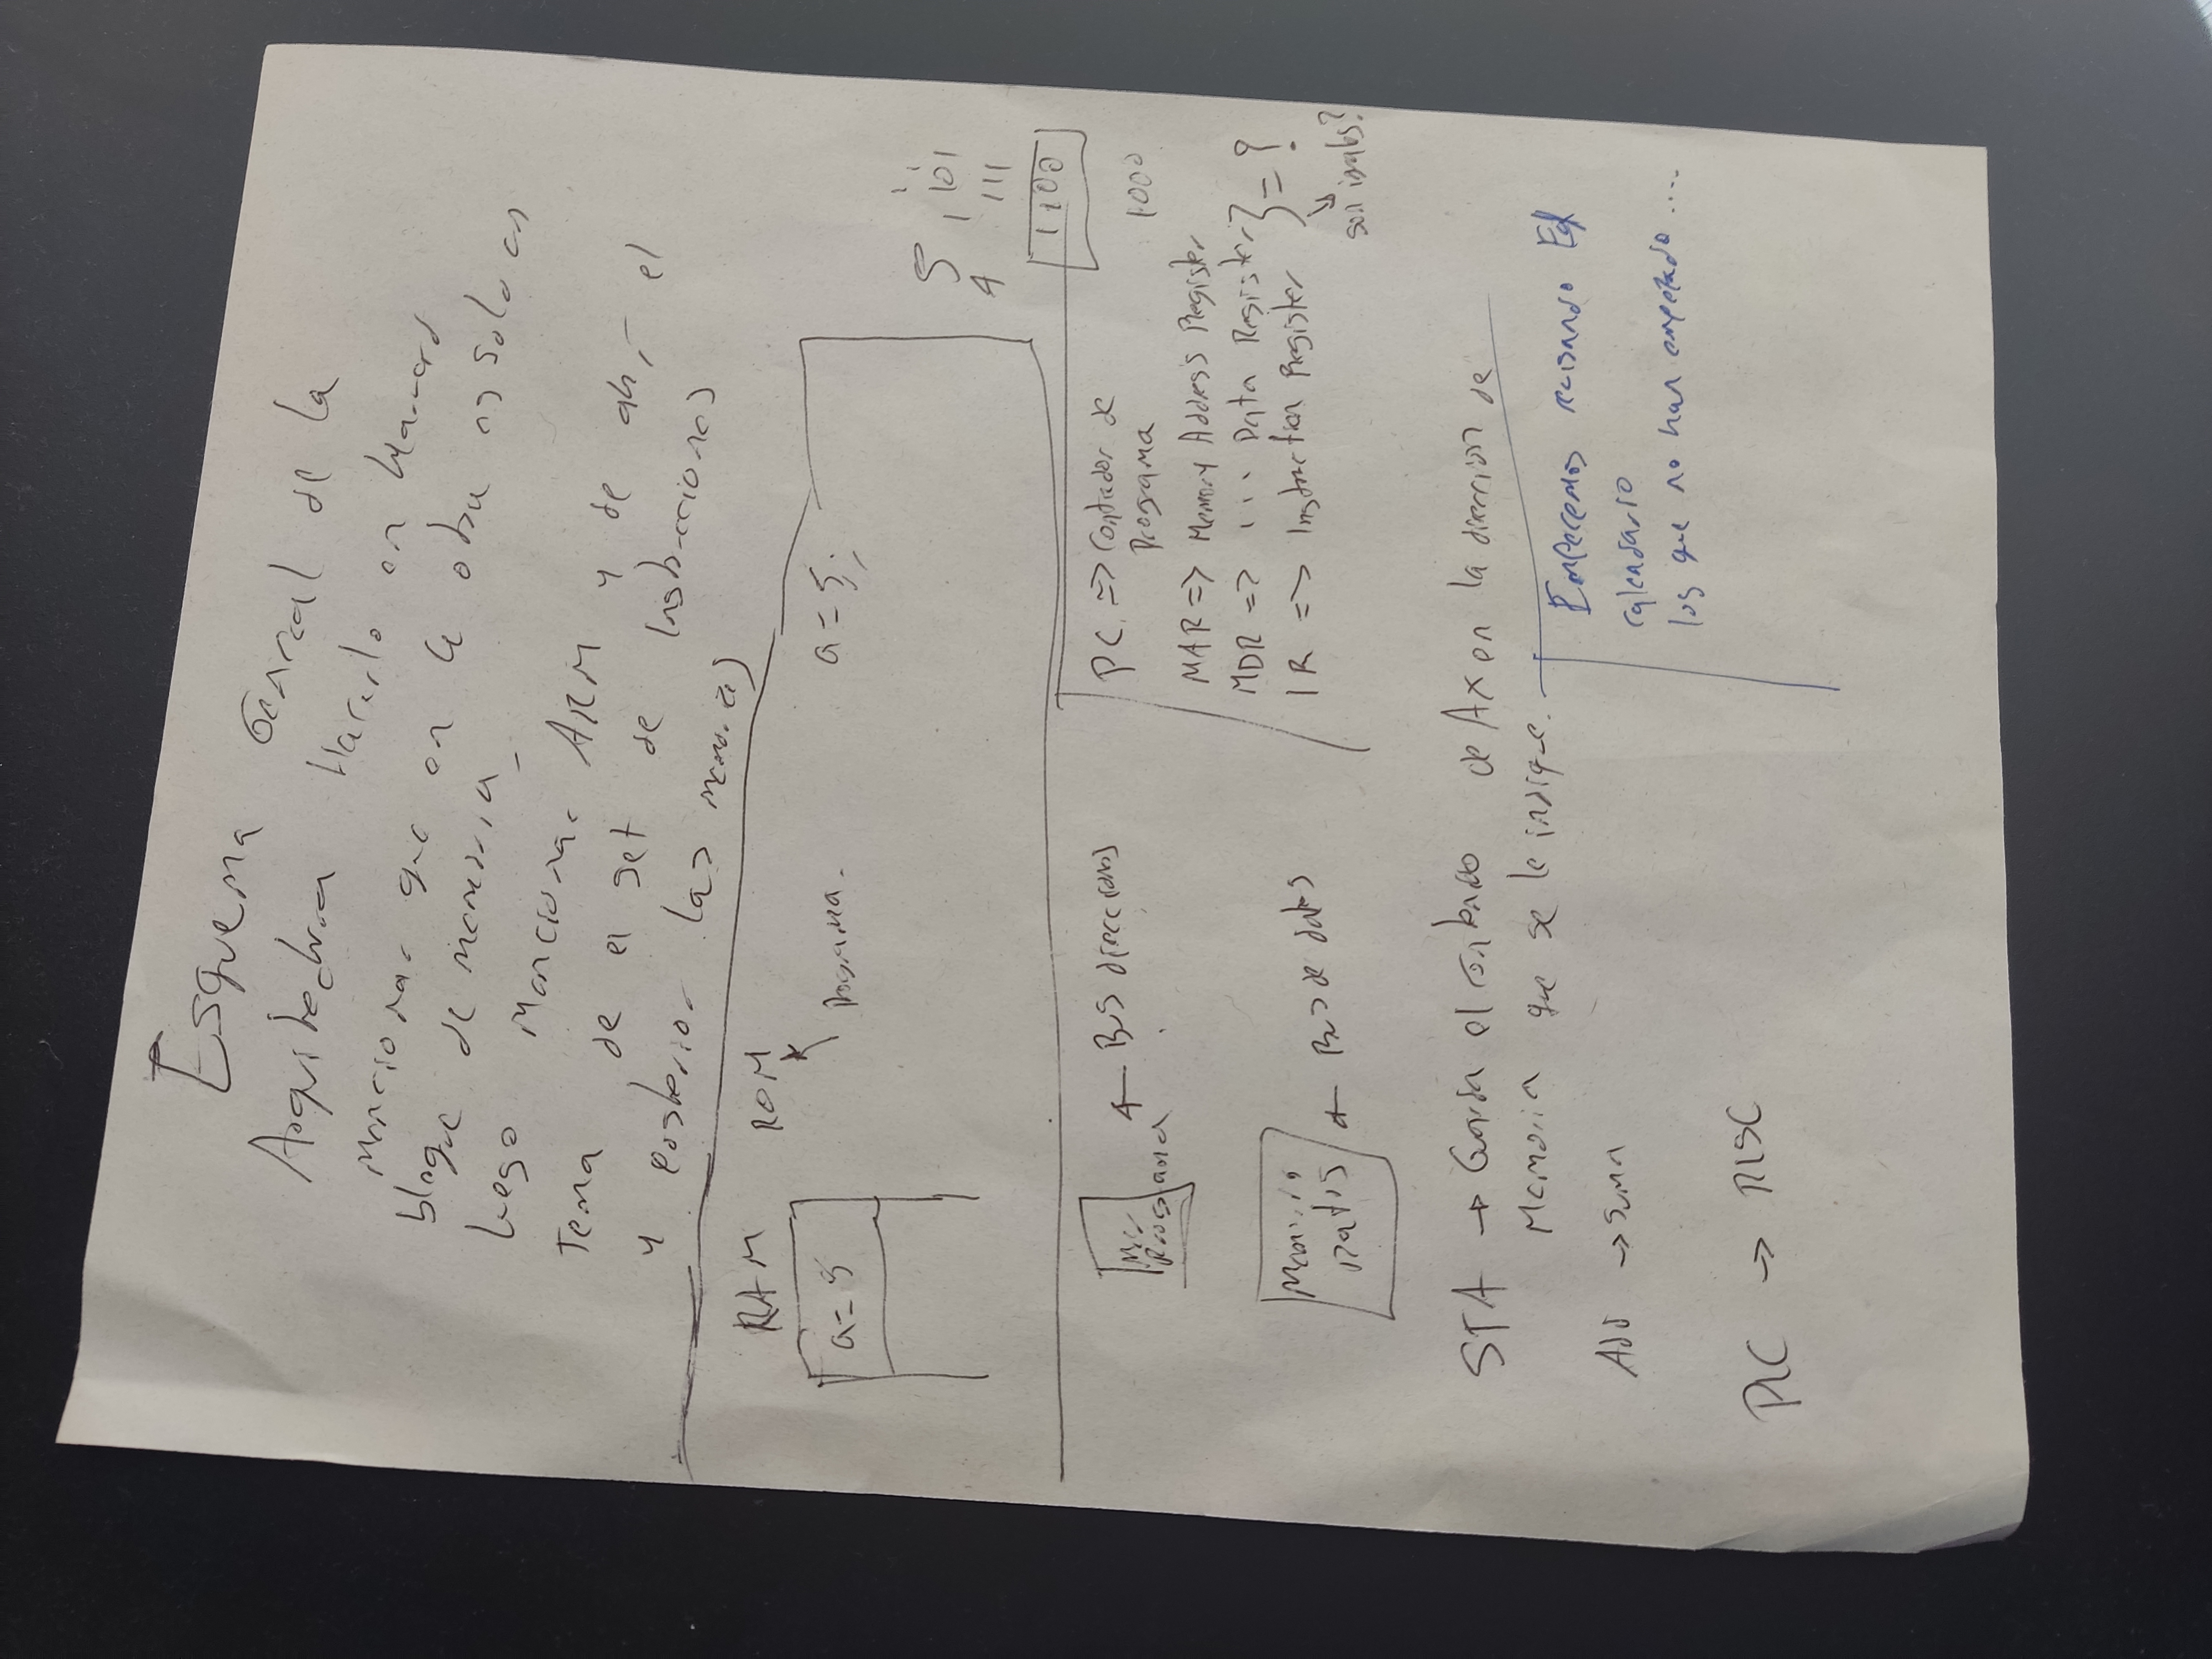 Esquema General de la
Arquitectura Hacerlo en Harvard
Mencionar que en la otra es solo un
bloque de memoria
luego Mencionar ARM y de ahi el
Tema de el set de Instrucciones
y posterior las memorias
RAM ROM
a= 5 Programa. a = 5;
5 101
111
1100
1000
Programa ← Bus direcciones
Memoria
Datos ← Bus de datos
PC => Contador de
Programa
MAR => Memory Address Register
MDR => ... Data Register } = ?
IR => Instruction Register
son iguales?
STA → Guarda el contenido de Ax en la direccion de
Memoria que se le indique.
Add → suma
PIC → RISC
Empecemos revisando El
calendario
los que no han empezado ....